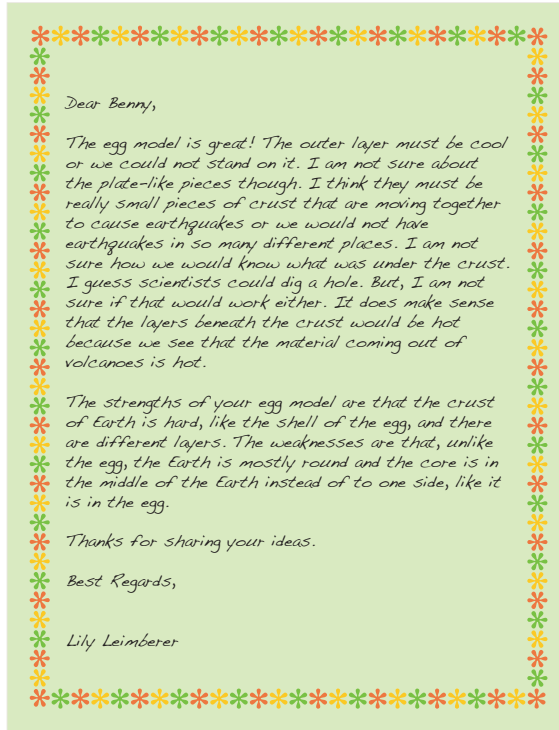 Dear Benny,
The egg model is great! The outer layer must be cool
or we could not stand on it. I am not sure about
the plate-like pieces though. I think they must be
really small pieces of crust that are moving together
to cause earthquakes or we would not have
earthquakes in so many different places. I am not
sure how we would know what was under the crust.
I guess scientists could dig a hole. But, I am not
sure if that would work either. It does make sense
that the layers beneath the crust would be hot
because we see that the material coming out of
volcanoes is hot.
The strengths of your egg model are that the crust
of Earth is hard, like the shell of the egg, and there
are different layers. The weaknesses are that, unlike
the egg, the Earth is mostly round and the core is in
the middle of the Earth instead of to one side, like it
is in the egg.
Thanks for sharing your ideas.
Best Regards,
Lily Leimberer